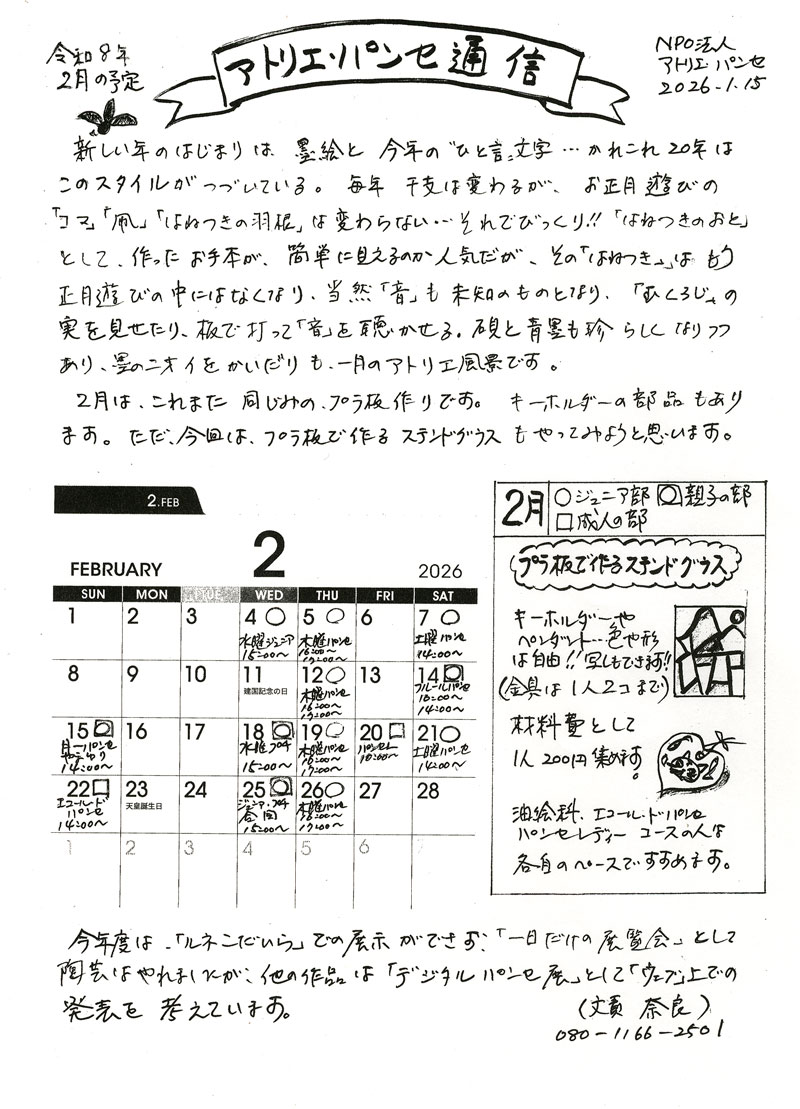 令和8年
2月の予定
アトリエ・パンセ通信
NPO法人
アトリエ・パンセ
2026-1.15
新しい年のはじまりは、墨絵と 今年の"ひと言"文字…かれこれ20年は
このスタイルがつづいている。毎年 干支は変わるが、お正月遊びの
「コマ」「凧」「はねつきの羽根」は変わらない…それでびっくり!!「はねつきのおと」
として、作ったお手本が、簡単に見えるのか人気だが、その「はねつき」は もう
正月遊びの中にはなくなり、当然「音」も未知のものとなり、「むくろじ」の
実を見せたり、板で打って「音」を聴かせる。硯と青墨も珍らしくなりつつ
あり、墨のニオイをかいだりも、一月のアトリエ風景です。
2月は、これまた 同じみの、プラ板作りです。 キーホルダーの部品もあり
ます。ただ、今回は、プラ板で作る ステンドグラス もやってみようと思います。
2.FEB
FEBRUARY 2 2026
SUN MON TUE WED THU FRI SAT
1 2 3 4○ 5○ 6 7○
水曜ジュニア 木曜パンセ 土曜パンセ
15:00〜 16:00〜 14:00〜
17:00〜
8 9 10 11 12○ 13 14
建国記念の日 木曜パンセ フルールパンセ
16:00〜 10:00〜
17:00〜 14:00〜
15 16 17 18 19○ 20□ 21○
月一パンセ 水曜 木曜パンセ 土曜パンセ
15:00〜 16:00〜 10:00〜 14:00〜
14:00〜 17:00〜
22□ 23 24 25 26○ 27 28
エコールド 天皇誕生日 ジュニア 木曜パンセ
パンセ 合同 16:00〜
14:00〜 15:00〜 17:00〜
1 2 3 4 5 6 7
2月 ○ジュニア部 親子の部
□成人の部
プラ板で作るステンドグラス
キーホルダーや
ペンダント…色や形
は自由!! 写しもできます!!
(金具は1人2コまで)
材料費として
1人200円集めます。
油絵科、エコール・ド・パンセ
パンセレディー コースの人は
各自のペースですすめます。
今年度は、「ルネこだいら」での展示ができず、「一日だけの展覧会」として
陶芸はやれましたが、他の作品は「デジタルパンセ展」として「ウェブ」上での
発表を 考えています。
(文責 奈良)
080-1166-2501